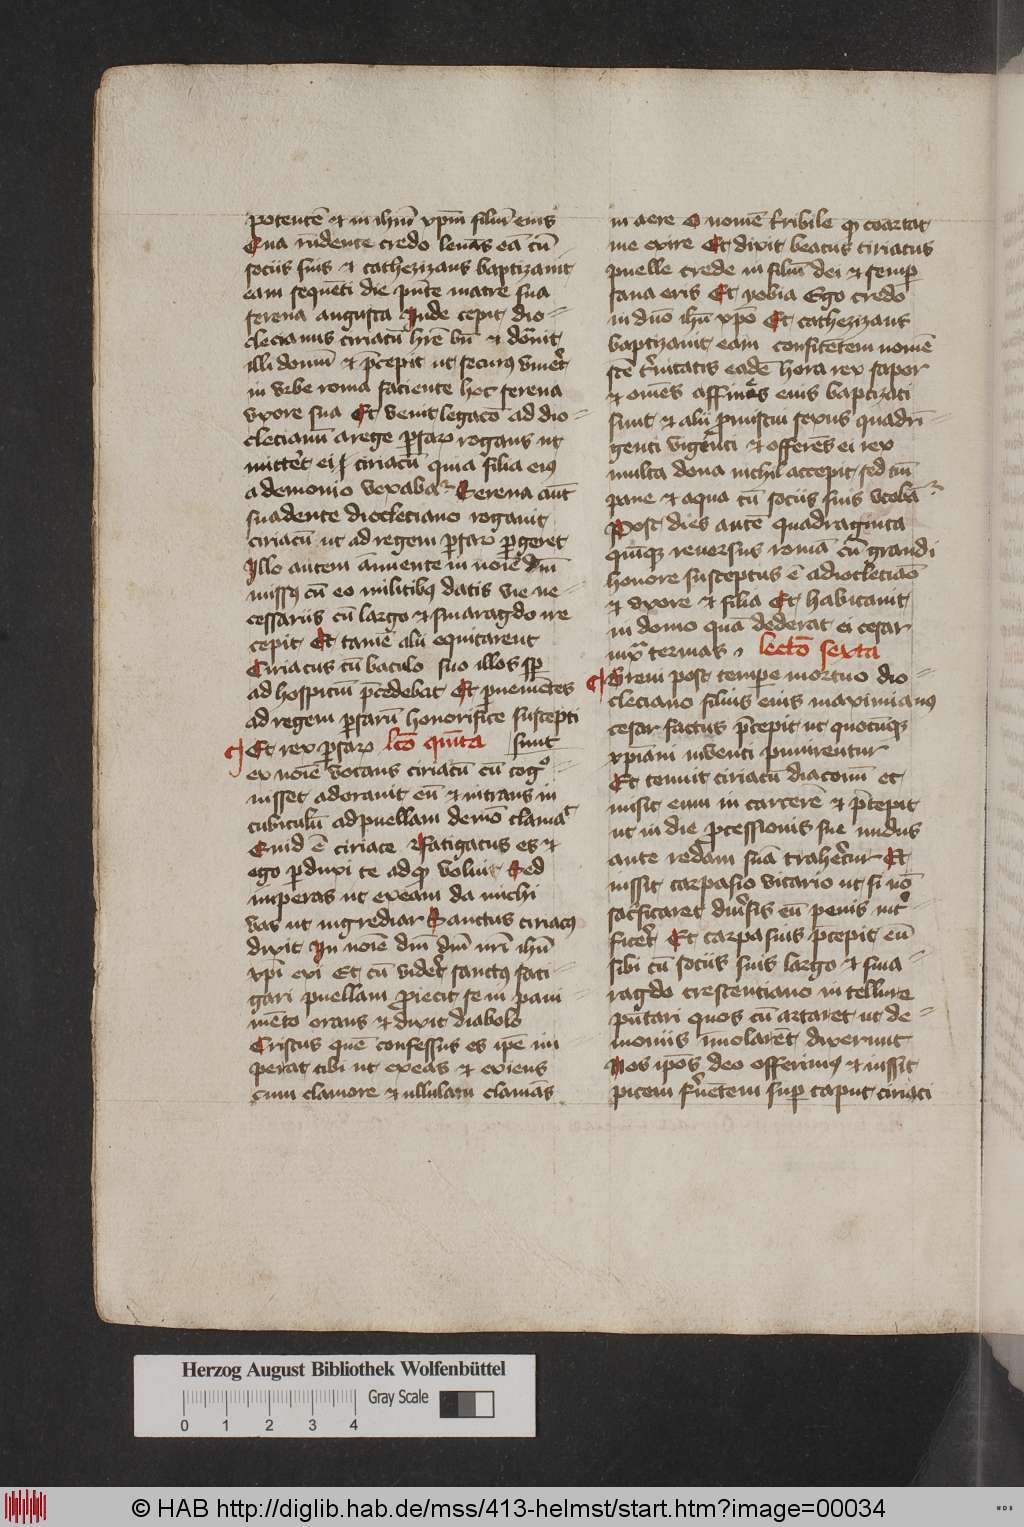 potentē et in ihm̄ xpm̄ filiū eius
Qua ridente credo leuās eā cū
sociis suis et cathezizans baptizauit
eam sequēti die pn̄te matre sua
serena augusta Inde cepit dio-
clecianus ciriacū hr̄e bn̄ et donauit
illi domū et p̄cepit ut securus viuer̄t
in vrbe roma faciente hoc serena
vxore sua Et venit legacō ad dio-
clecianū a rege p̄saꝝ rogans ut
mitter̄t ei ciriacū quia filia eiꝰ
a demonio vexabat᷑ Serena aūt
suadente diocleciano rogauit
ciriacū ut ad regem p̄saꝝ p̄geret
Illo autem ānuente in noīe dn̄i
missꝰ cū eo militibꝰ datis vie ne-
cessariis cū largo et smaragdo ire
cepit Et tamē alii equitarent
Ciriacus cū baculo suo illos sp̄
ad hospiciū p̄cedebat Et pueniētes
ad regem p̄sarū honorifice suscepti
Et rex p̄saꝝ lc̄o quīta sunt
ex noīe vocans ciriacū cū cog-
nisset adorauit eū et intrans in
cubiculū ad puellam demō clamat
Quid ē ciriace fatigatus es et
ego p̄duxi te ad qd̄ volui Sed
imperas ut exeam da michi
vas ut ingrediar Sanctus ciriacꝰ
dixit In noīe dn̄i dn̄i nr̄i ihū
xpī exi Et cū vider̄t sanctꝰ fati-
gari puellam proiecit se in paui-
mēto orans et dixit diabolo
Cristus quē confessus es ipē im
perat tibi ut exeas et exiens
cum clamore et ullulatu clamās
in aere O nomē t̄ribile qd̄ coartat
me exire Et dixit beatus ciriacus
puelle crede in filiū dei et semp̄
sana eris Et iobia Ego credo
in dn̄o ihū xpō Et cathezizans
baptizauit eam confitētem nomē
sc̄e t̄nitatis eadē hora rex sapor
et omēs affines eius baptizati
sunt et alii p̄miscui sexus quadri-
genti viginti et offerēs ei rex
multa dona nichil accepit sed tm̄
pane et aqua cū sociis suis vtebat᷑
Post dies autē quadraginta
quīqꝫ reuersus romā cū grandi
honore susceptus ē a diocleciāo
et vxore et filia Et habitauit
in domo quā dederat ei cesar
iuxͣ termas lectō sexta
Breui post tempe mortuo dio-
cleciano filius eius maximianꝰ
cesar factus p̄cepit ut quotūqꝫ
xpiani inuenti punirentur
Et tenuit ciriacū diaconū et
misit eum in carcerē et p̄cepit
ut in die p̄cessionis sue nudus
ante redam suā traher̄tur Et
iussit carpasio vicario ut si nō
sacficaret diūsis eū penis int̄-
ficer̄t Et carpasius p̄cepit eū
sibi cū sociis suis largo et sma-
ragdo crescentiano in tellure
pn̄tari quos cū artaret ut de-
moniis īmolarēt dixerunt
Nos ipōs deo offerimꝰ et iussit
picem fr̄uētem sup̄ caput ciriaci
Herzog August Bibliothek Wolfenbüttel
Gray Scale
0 1 2 3 4
© HAB http://diglib.hab.de/mss/413-helmst/start.htm?image=00034